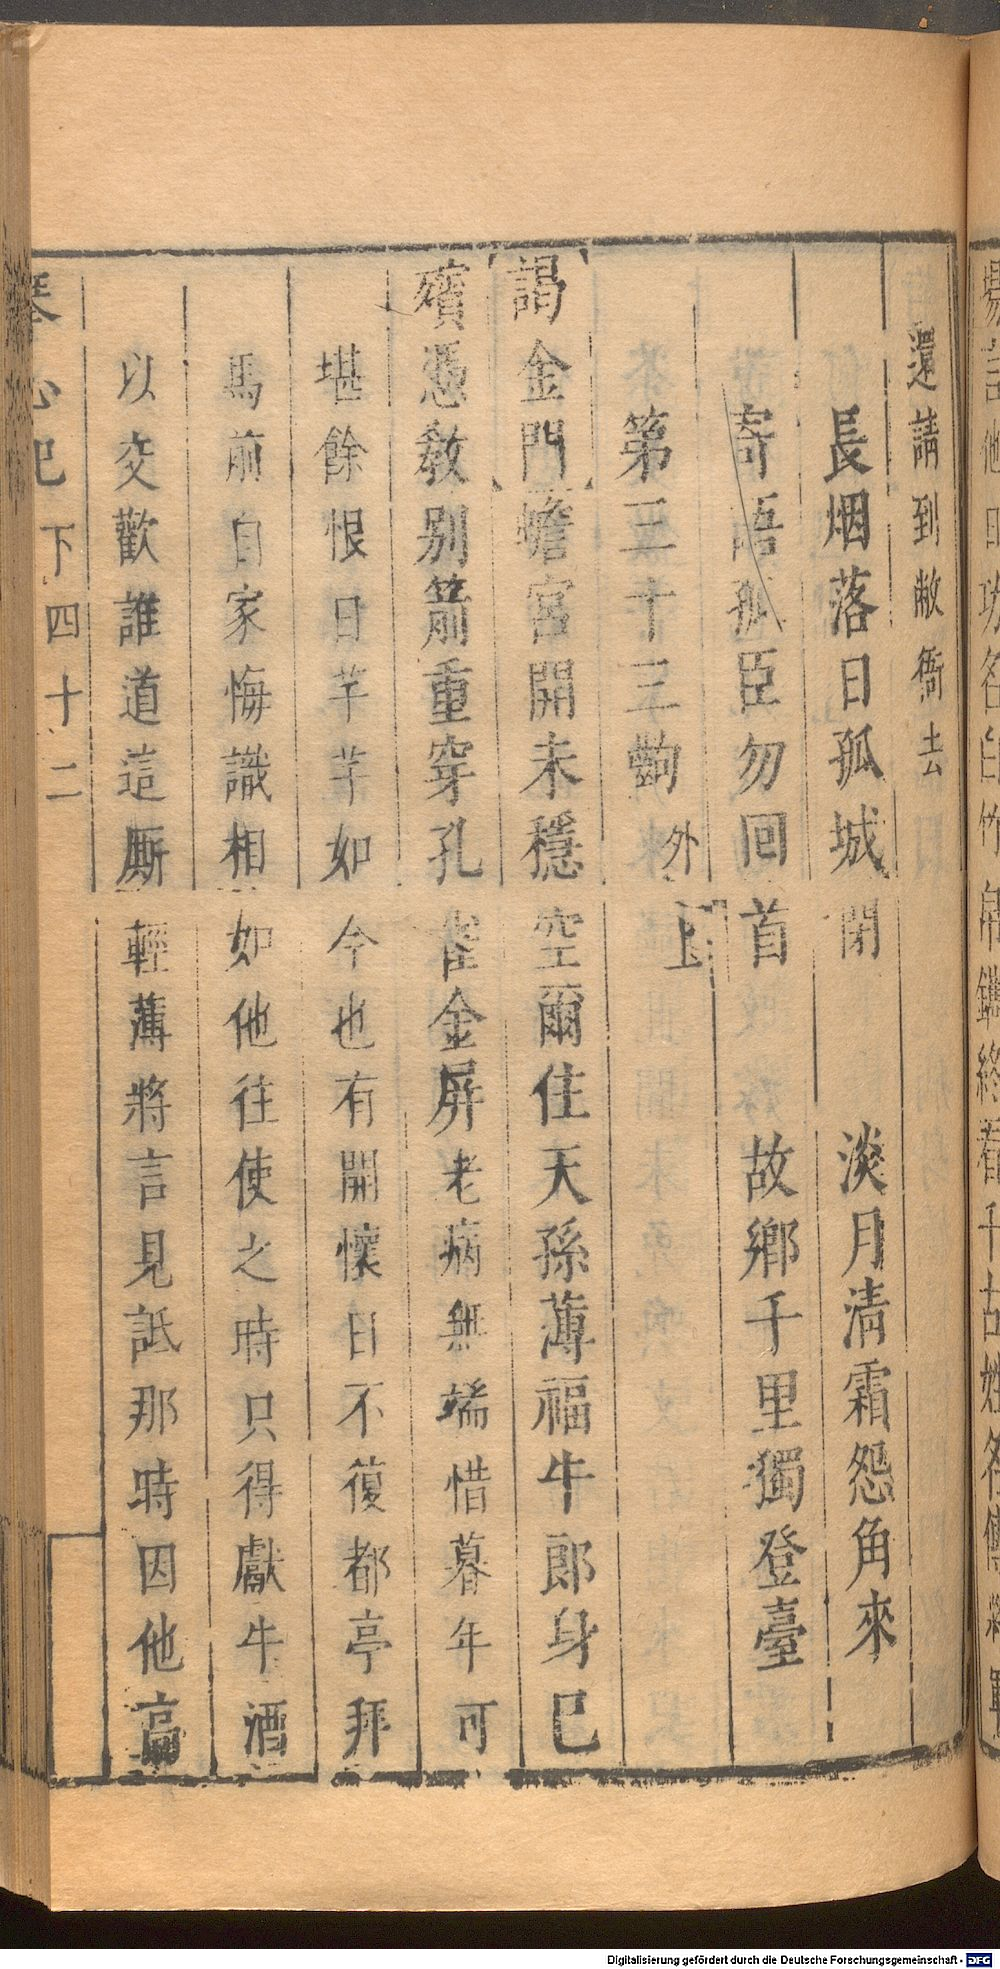 還請到敝衙去
長烟落日孤城閉　淡月淸霜怨角來
寄語孤臣勿回首　故鄉千里獨登臺
第三十三齣　外上
謁金門蟾宮開未穩空爾住天孫薄福牛郎身已
殯憑敎别箭重穿孔雀金屏老病無端惜暮年可
堪餘恨日芊芊如今也有開懷日不復都亭拜
馬前自家悔識相如他往使之時只得獻牛酒
以交歡誰道這厮輕薄將言見詆那時因他高
琴心記　下　四十二
Digitalisierung gefördert durch die Deutsche Forschungsgemeinschaft - DFG